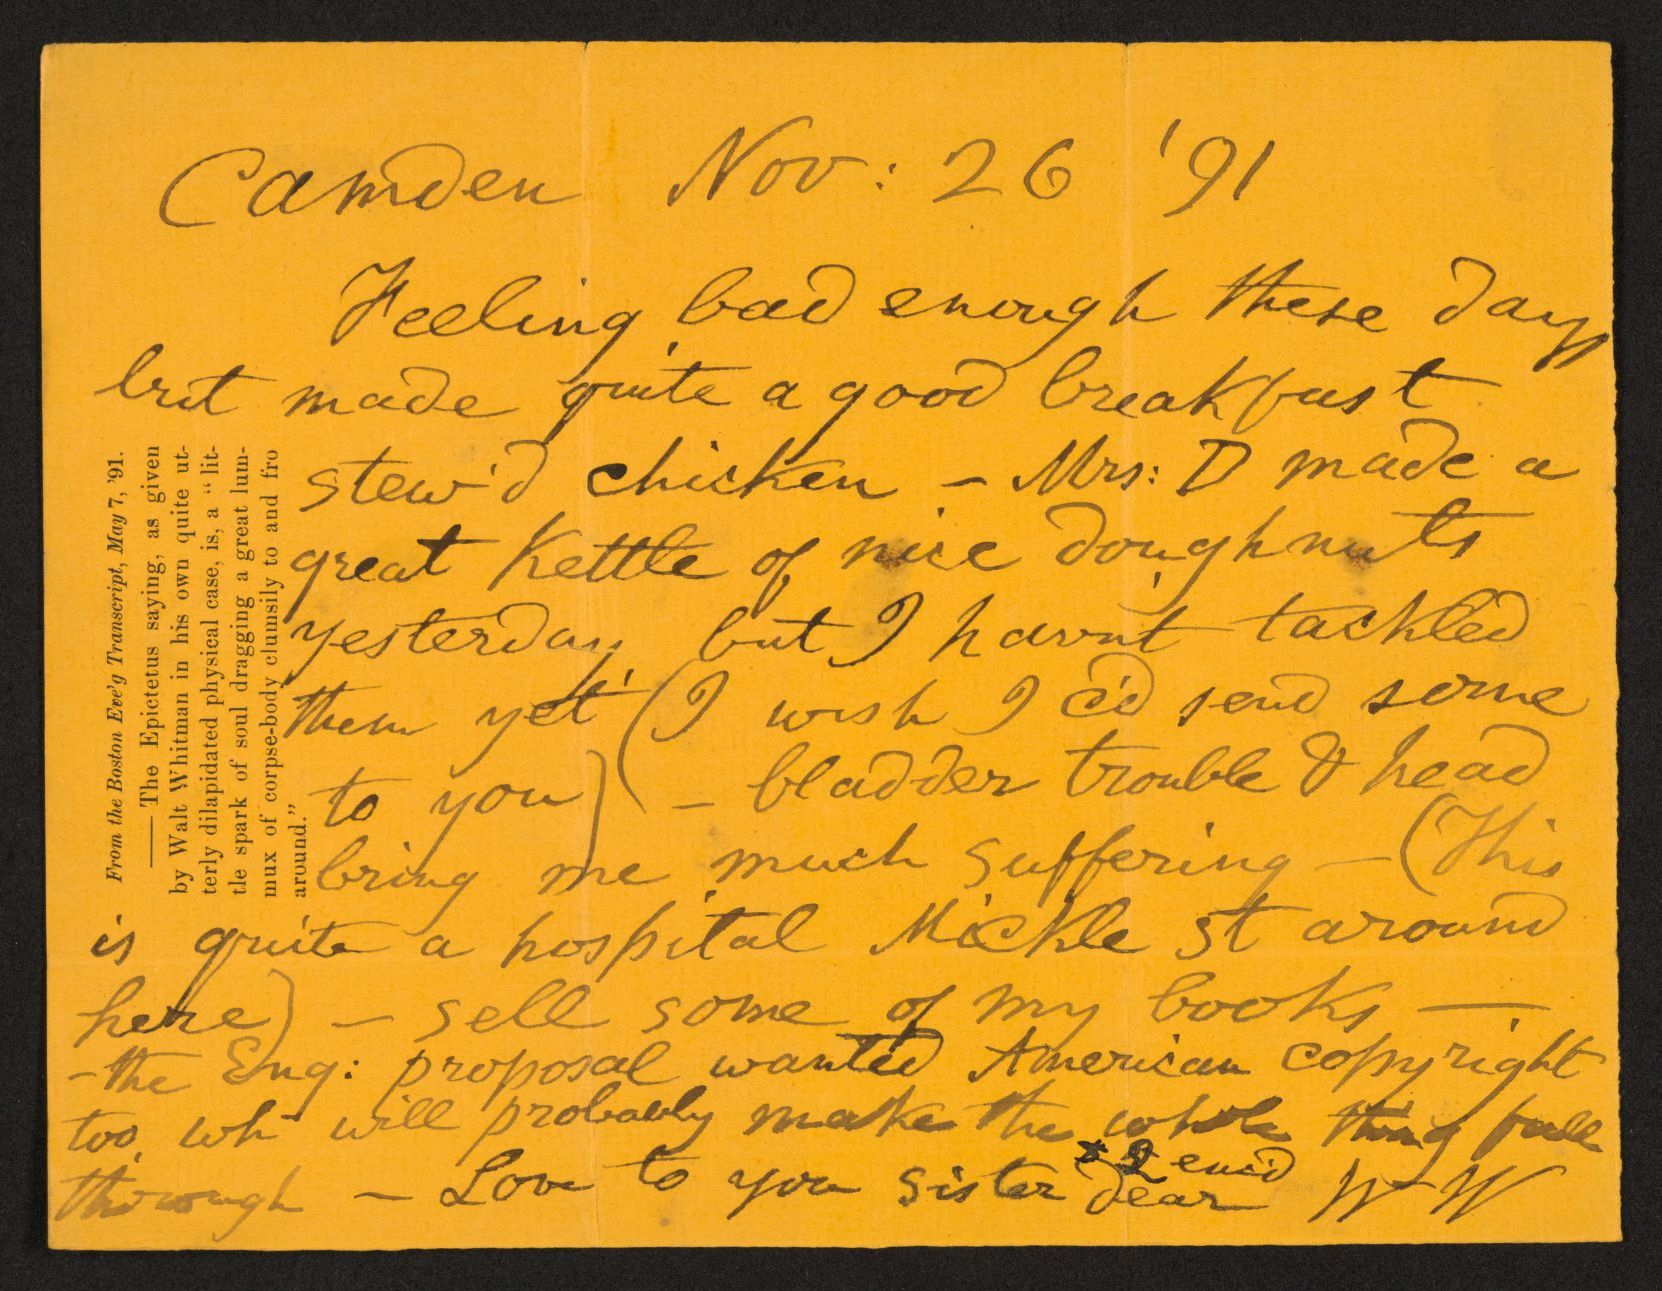 Camden Nov: 26 '91
Feeling bad enough these days
but made quite a good breakfast
stew'd chicken – Mrs: D made a
great kettle of nice doughnuts
yesterday, but I havn't tackled
them yet (I wish I c'd send some
to you) – bladder trouble & head
bring me much suffering – (This
is quite a hospital Mickle st around
here) – sell some of my books —
– the Eng: proposal wanted American copyright
too, wh' will probably make the whole thing fall
thorough – Love to you sister dear W W
$2 enc'd
From the Boston Eve'g Transcript, May 7, '91.
—— The Epictetus saying, as given
by Walt Whitman in his own quite ut-
terly dilapidated physical case, is, a "lit-
tle spark of soul dragging a great lum-
mux of corpse-body clumsily to and fro
around."